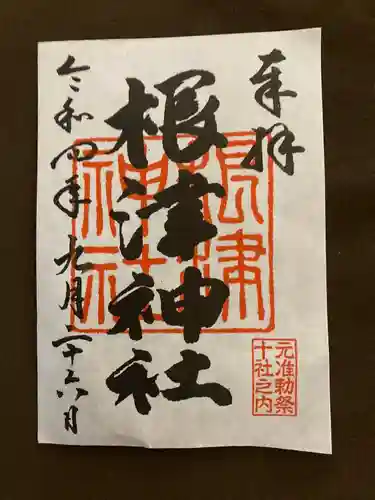 奉拝
根津神社
令和四年九月二十六日
根津
神社
元准勅祭
十社之内